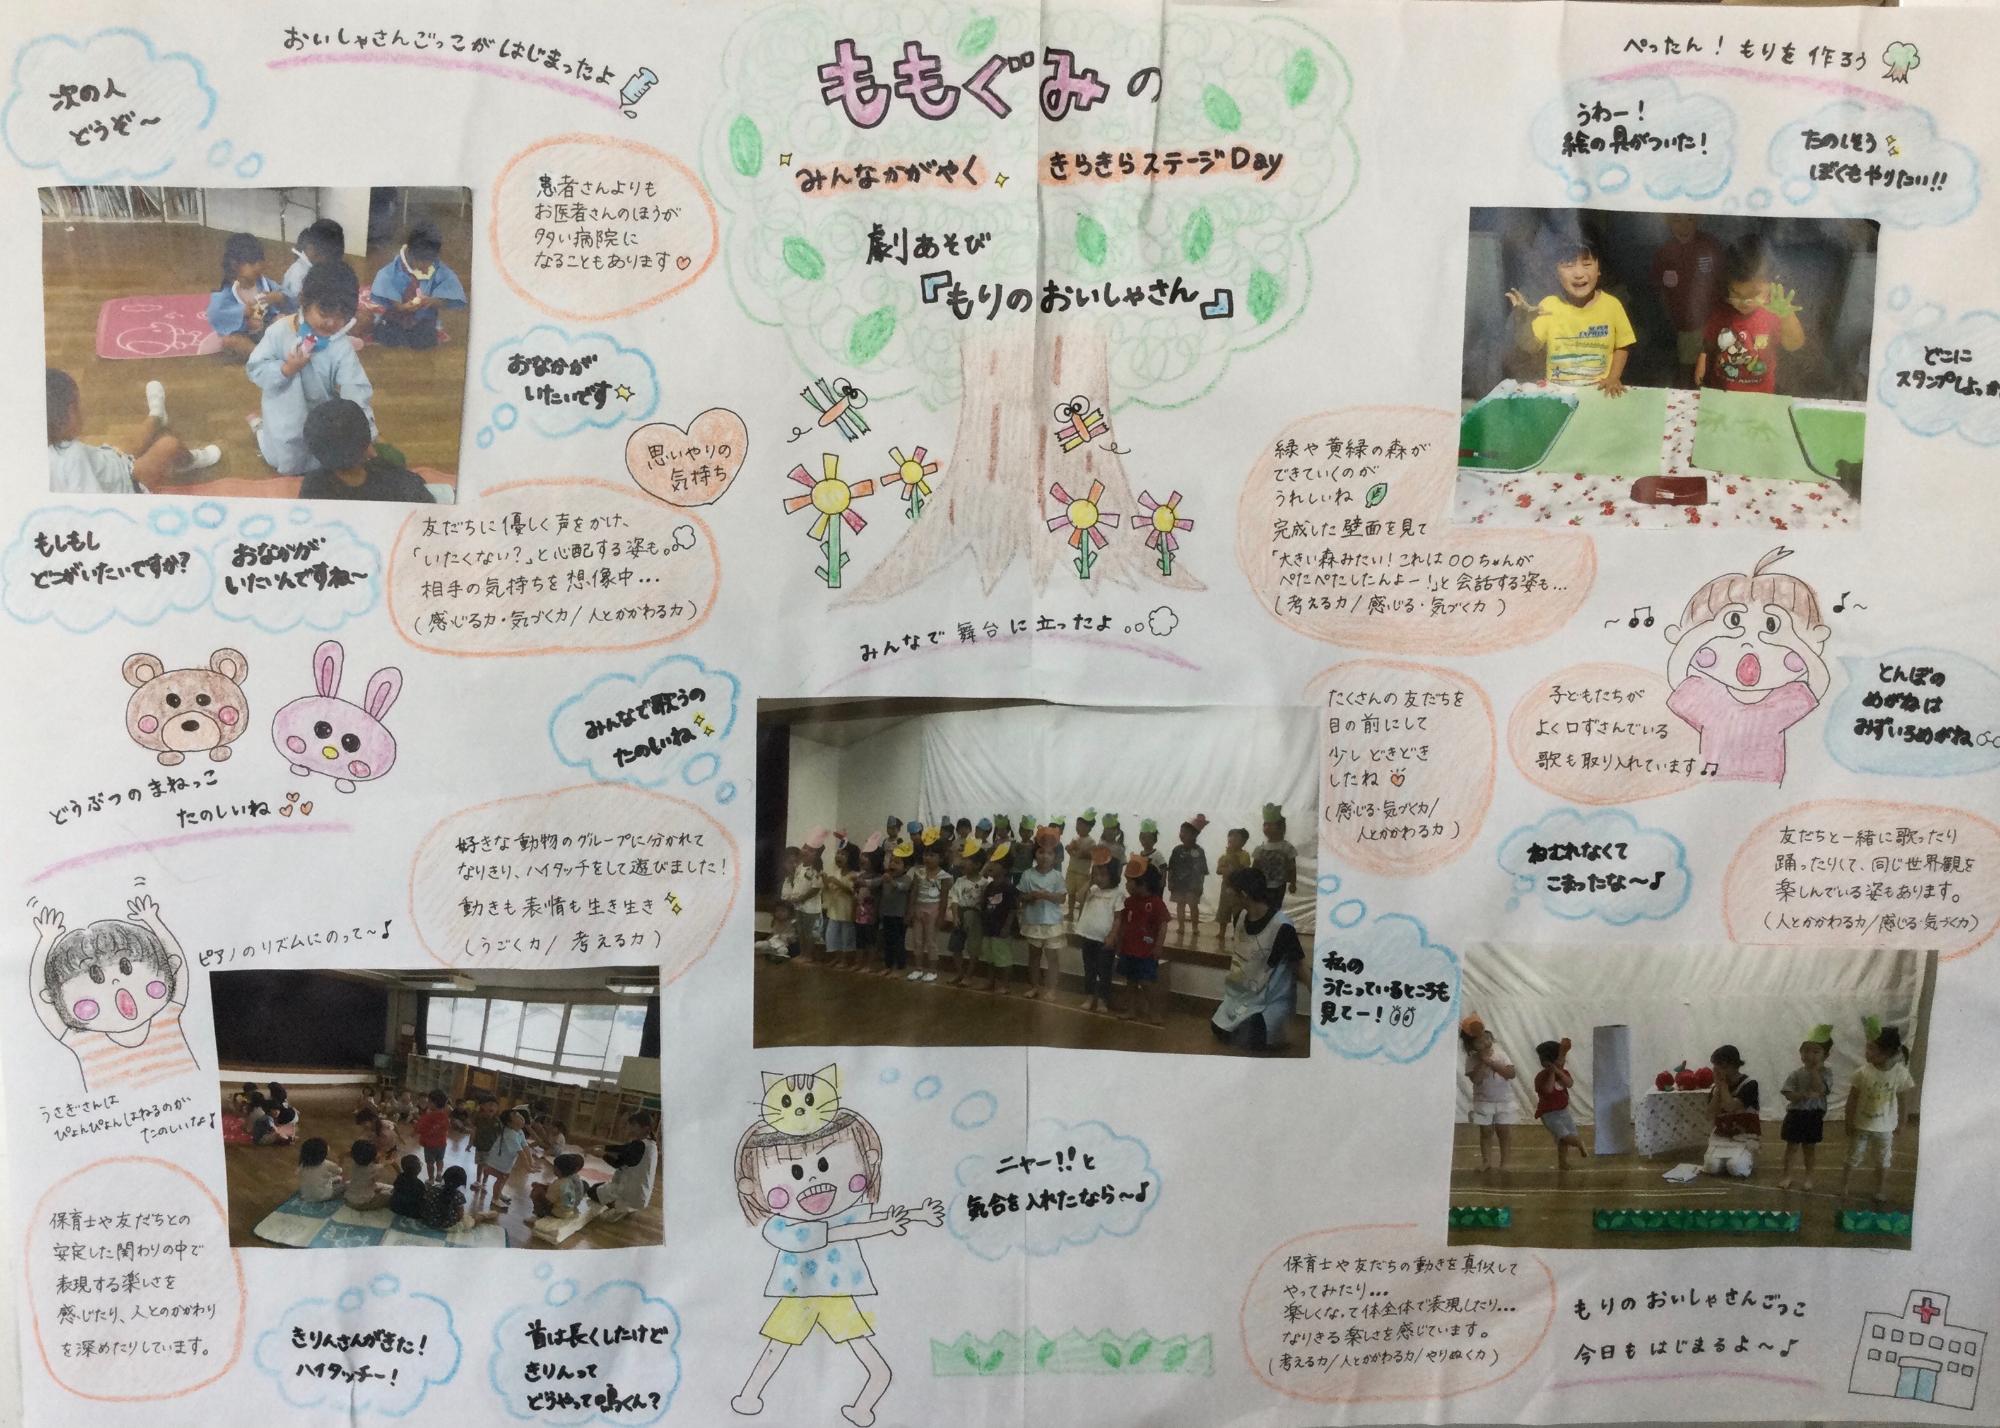 ももぐみの
みんなかがやく
きらきらステージDay
劇あそび
『もりのおいしゃさん』
おいしゃさんごっこがはじまったよ
次の人
どうぞ～
患者さんよりも
お医者さんのほうが
多い病院に
なることもあります♡
おなかが
いたいです
思いやりの
気持ち
もしもし
どこがいたいですか?
おなかが
いたいんですね～
友だちに優しく声をかけ、
「いたくない?」と心配する姿も。
相手の気持ちを想像中…
(感じる力・気づく力/人とかかわる力)
どうぶつのまねっこ
たのしいね
みんなで歌うの
たのしいね
好きな動物のグループに分かれて
なりきり、ハイタッチをして遊びました!
動きも表情も生き生き
(うごく力/考える力)
ピアノのリズムにのって～♪
うさぎさんは
ぴょんぴょんはねるのが
たのしいな♪
保育士や友だちとの
安定した関わりの中で
表現する楽しさを
感じたり、人とのかかわり
を深めたりしています。
きりんさんがきた!
ハイタッチー!
首は長くしたけど
きりんって
どうやって鳴くん?
みんなで舞台に立ったよ
たくさんの友だちを
目の前にして
少しどきどき
したね♡
(感じる・気づく力/
人とかかわる力)
私の
うたっているところも
見てー!
ニャー!!と
気合を入れたなら～♪
ぺったん!もりを作ろう
うわー!
絵の具がついた!
たのしそう
ぼくもやりたい!!
どこに
スタンプしよっか
緑や黄緑の森が
できていくのが
うれしいね
完成した壁面を見て
「大きい森みたい!これは○○ちゃんが
ぺたぺたしたんよー!」と会話する姿も…
(考える力/感じる・気づく力)
～♫
♪～
子どもたちが
よく口ずさんでいる
歌も取り入れています♫
とんぼの
めがねは
みずいろめがね
ねむれなくて
こまったな～♪
友だちと一緒に歌ったり
踊ったりして、同じ世界観を
楽しんでいる姿もあります。
(人とかかわる力/感じる・気づく力)
保育士や友だちの動きを真似して
やってみたり…
楽しくなって体全体で表現したり…
なりきる楽しさを感じています。
(考える力/人とかかわる力/やりぬく力)
もりのおいしゃさんごっこ
今日もはじまるよ～♪